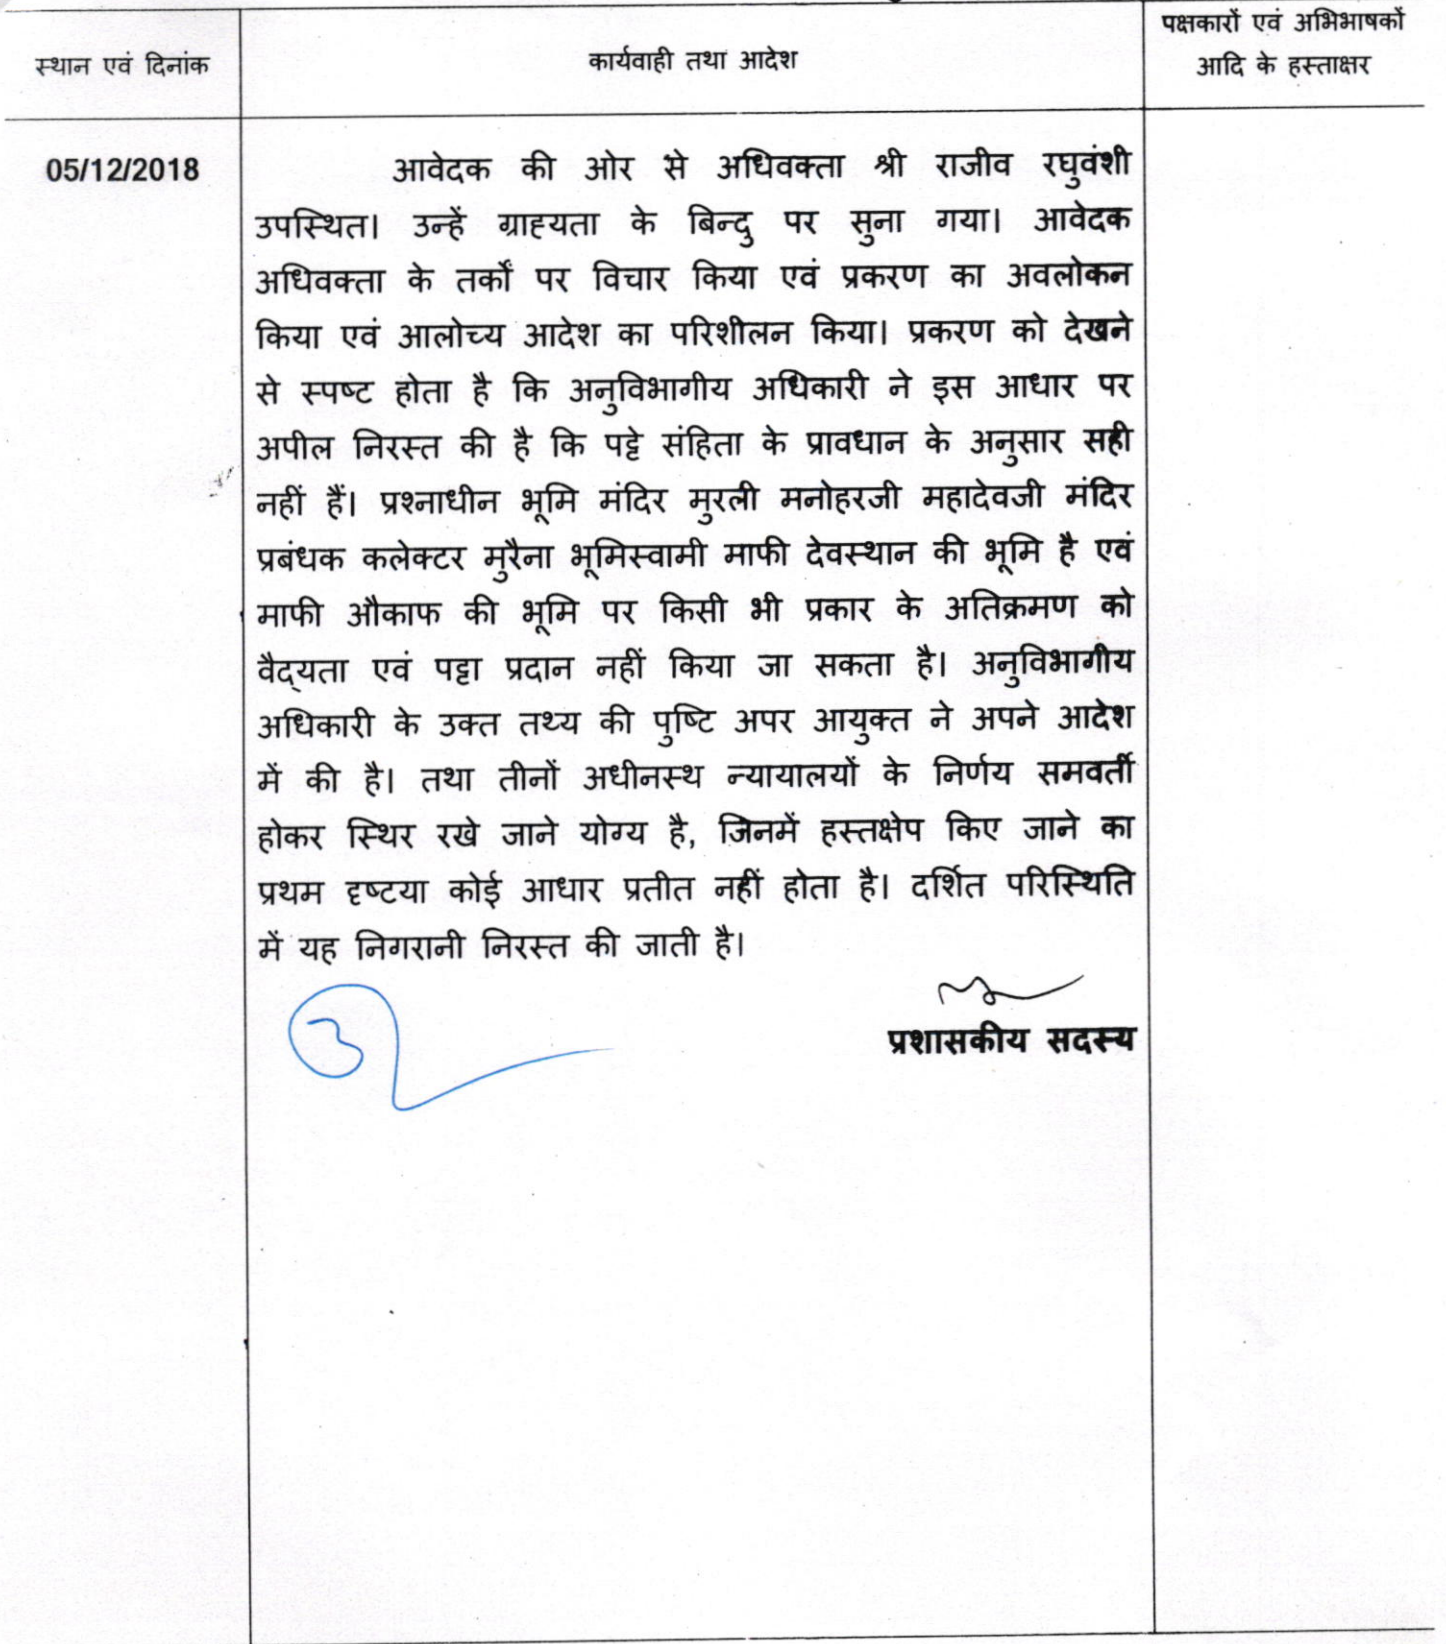 स्थान एवं दिनांक
कार्यवाही तथा आदेश
पक्षकारों एवं अभिभाषकों
आदि के हस्ताक्षर
05/12/2018
आवेदक की ओर से अधिवक्ता श्री राजीव रघुवंशी
उपस्थित। उन्हें ग्राह्यता के बिन्दु पर सुना गया। आवेदक
अधिवक्ता के तर्कों पर विचार किया एवं प्रकरण का अवलोकन
किया एवं आलोच्य आदेश का परिशीलन किया। प्रकरण को देखने
से स्पष्ट होता है कि अनुविभागीय अधिकारी ने इस आधार पर
अपील निरस्त की है कि पट्टे संहिता के प्रावधान के अनुसार सही
नहीं हैं। प्रश्नाधीन भूमि मंदिर मुरली मनोहरजी महादेवजी मंदिर
प्रबंधक कलेक्टर मुरैना भूमिस्वामी माफी देवस्थान की भूमि है एवं
माफी औकाफ की भूमि पर किसी भी प्रकार के अतिक्रमण को
वैद्यता एवं पट्टा प्रदान नहीं किया जा सकता है। अनुविभागीय
अधिकारी के उक्त तथ्य की पुष्टि अपर आयुक्त ने अपने आदेश
में की है। तथा तीनों अधीनस्थ न्यायालयों के निर्णय समवर्ती
होकर स्थिर रखे जाने योग्य है, जिनमें हस्तक्षेप किए जाने का
प्रथम दृष्टया कोई आधार प्रतीत नहीं होता है। दर्शित परिस्थिति
में यह निगरानी निरस्त की जाती है।
प्रशासकीय सदस्य